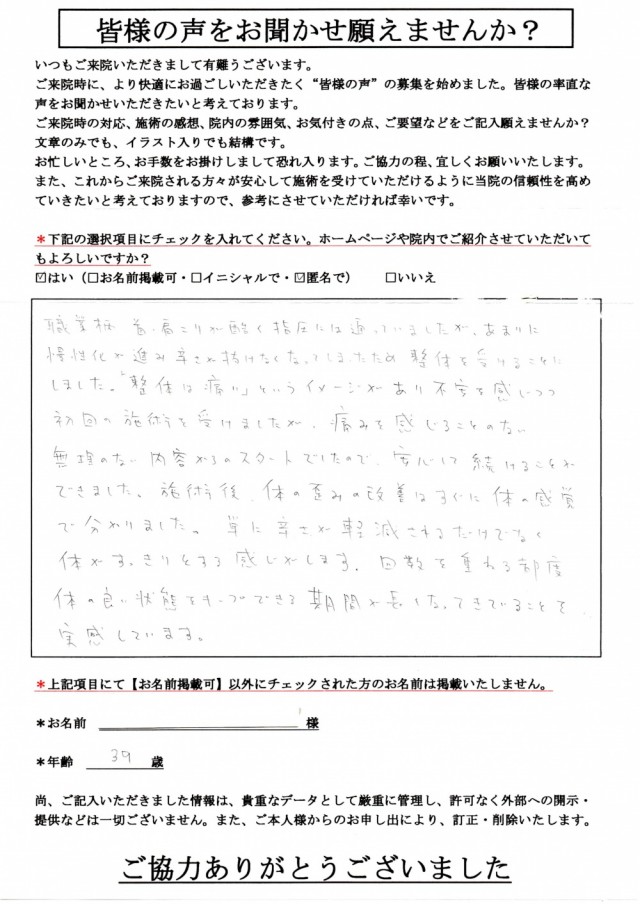 皆様の声をお聞かせ願えませんか？
いつもご来院いただきまして有難うございます。
ご来院時に、より快適にお過ごしいただきたく“皆様の声”の募集を始めました。皆様の率直な
声をお聞かせいただきたいと考えております。
ご来院時の対応、施術の感想、院内の雰囲気、お気付きの点、ご要望などをご記入願えませんか？
文章のみでも、イラスト入りでも結構です。
お忙しいところ、お手数をお掛けしまして恐れ入ります。ご協力の程、宜しくお願いいたします。
また、これからご来院される方々が安心して施術を受けていただけるように当院の信頼性を高め
ていきたいと考えておりますので、参考にさせていただければ幸いです。
＊下記の選択項目にチェックを入れてください。ホームページや院内でご紹介させていただいて
もよろしいですか？
☑はい（□お名前掲載可・□イニシャルで・☑匿名で）　□いいえ
職業柄 首・肩こりが酷く指圧には通っていましたが、あまりに
慢性化が進み辛さが抜けなくなってしまったため 整体を受けることに
しました。「整体は痛い」というイメージがあり不安を感じつつ
初回の施術を受けましたが、痛みを感じることのない
無理のない内容からのスタートでしたので、安心して続けることが
できました。施術後、体の歪みの改善はすぐに体の感覚
で分かりました。単に辛さが軽減されるだけでなく
体がすっきりとする感じがします。回数を重ねる都度
体の良い状態をキープできる期間が長くなってきていることを
実感しています。
＊上記項目にて【お名前掲載可】以外にチェックされた方のお名前は掲載いたしません。
＊お名前　様
＊年齢　39　歳
尚、ご記入いただきました情報は、貴重なデータとして厳重に管理し、許可なく外部への開示・
提供などは一切ございません。また、ご本人様からのお申し出により、訂正・削除いたします。
ご協力ありがとうございました